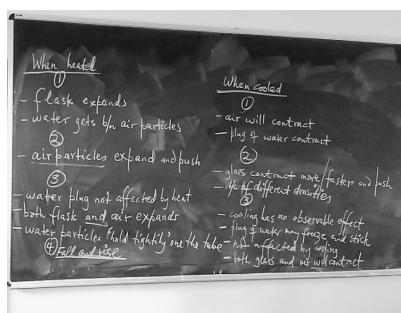 When heated
①
- flask expands
- water gets b/n air particles
②
- air particles expand and push
③
- water plug not affected by heat
- both flask and air expands
- water particles "hold tightly" one the tube
④ Fall and rise
When cooled
①
- air will contract
- plug of water contract
②
- glass contract more/faster and push
- of different densities
③
- cooling has no observable effect
- plug of water may freeze and stick
- not affected by cooling
- both glass and air will contract